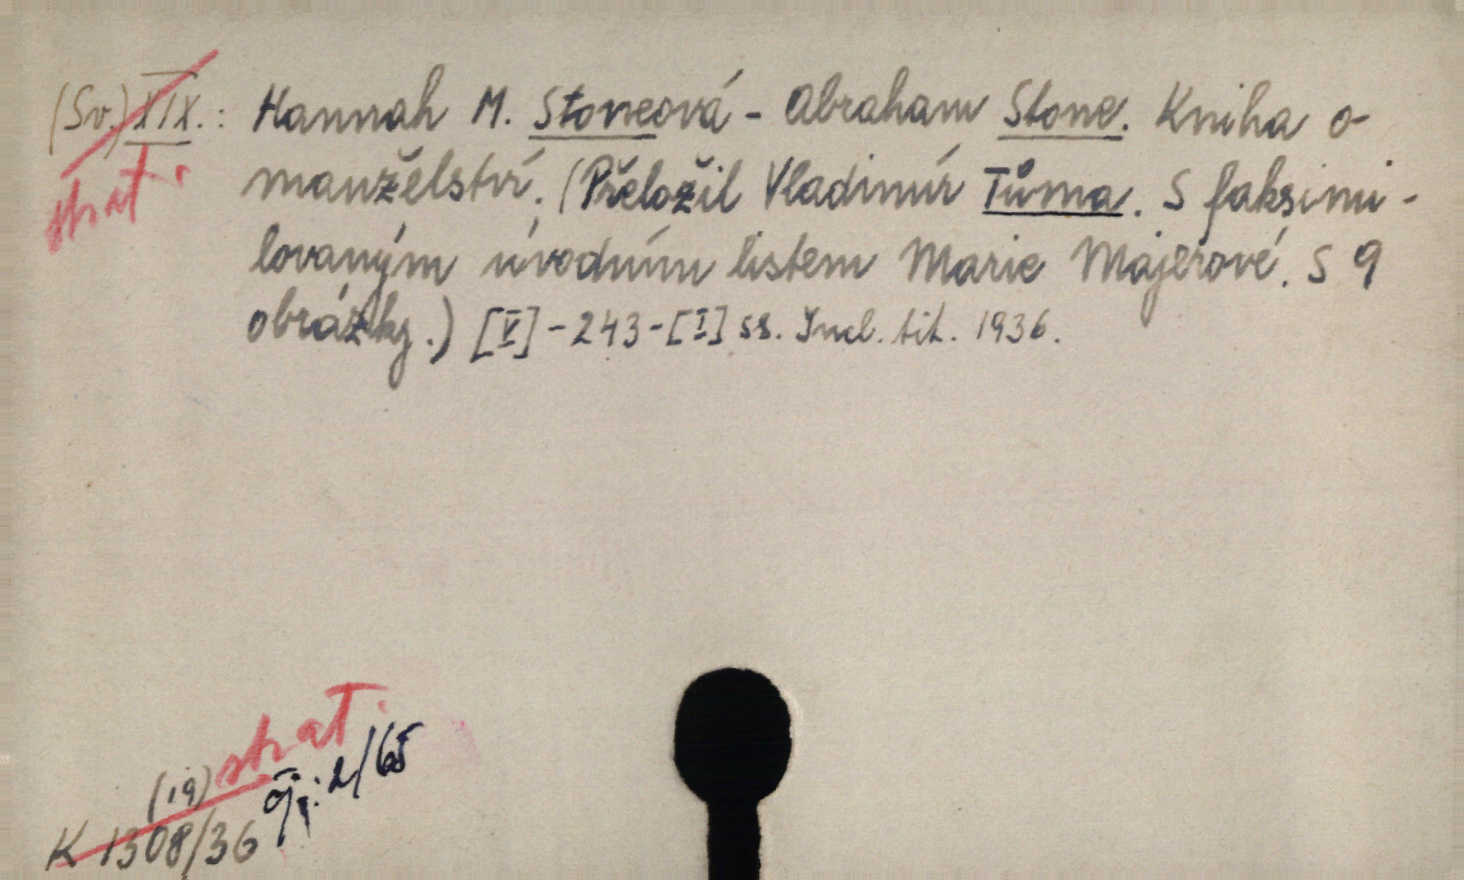 (Sv.) XIX.: Hannah M. Stoneová - Abraham Stone. Kniha o
manželství. (Přeložil Vladimír Tůma. S faksimi-
strat.
lovaným úvodním listem Marie Majerové. S 9
obrázky.) [V]-243-[I] ss. Incl. tit. 1936.
strat.
(19)
2/65
K 1308/36